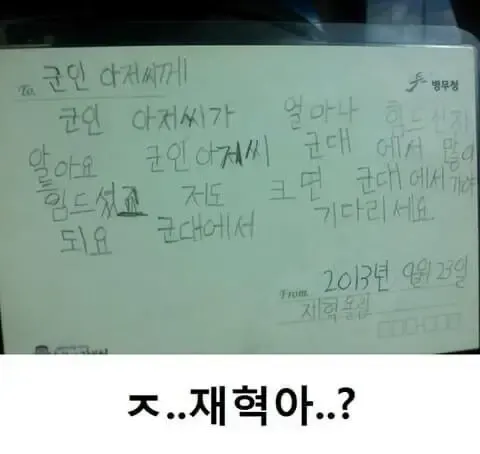 To. 군인 아저씨께
병무청
군인 아저씨가 얼마나 힘드신지
알아요 군인아저씨 군대에서 많이
힘드셨죠 저도 크면 군대에서 가야
되요 군대에서 기다리세요.
2013년 9월 23일
From. 재혁올림
ㅈ..재혁아..?